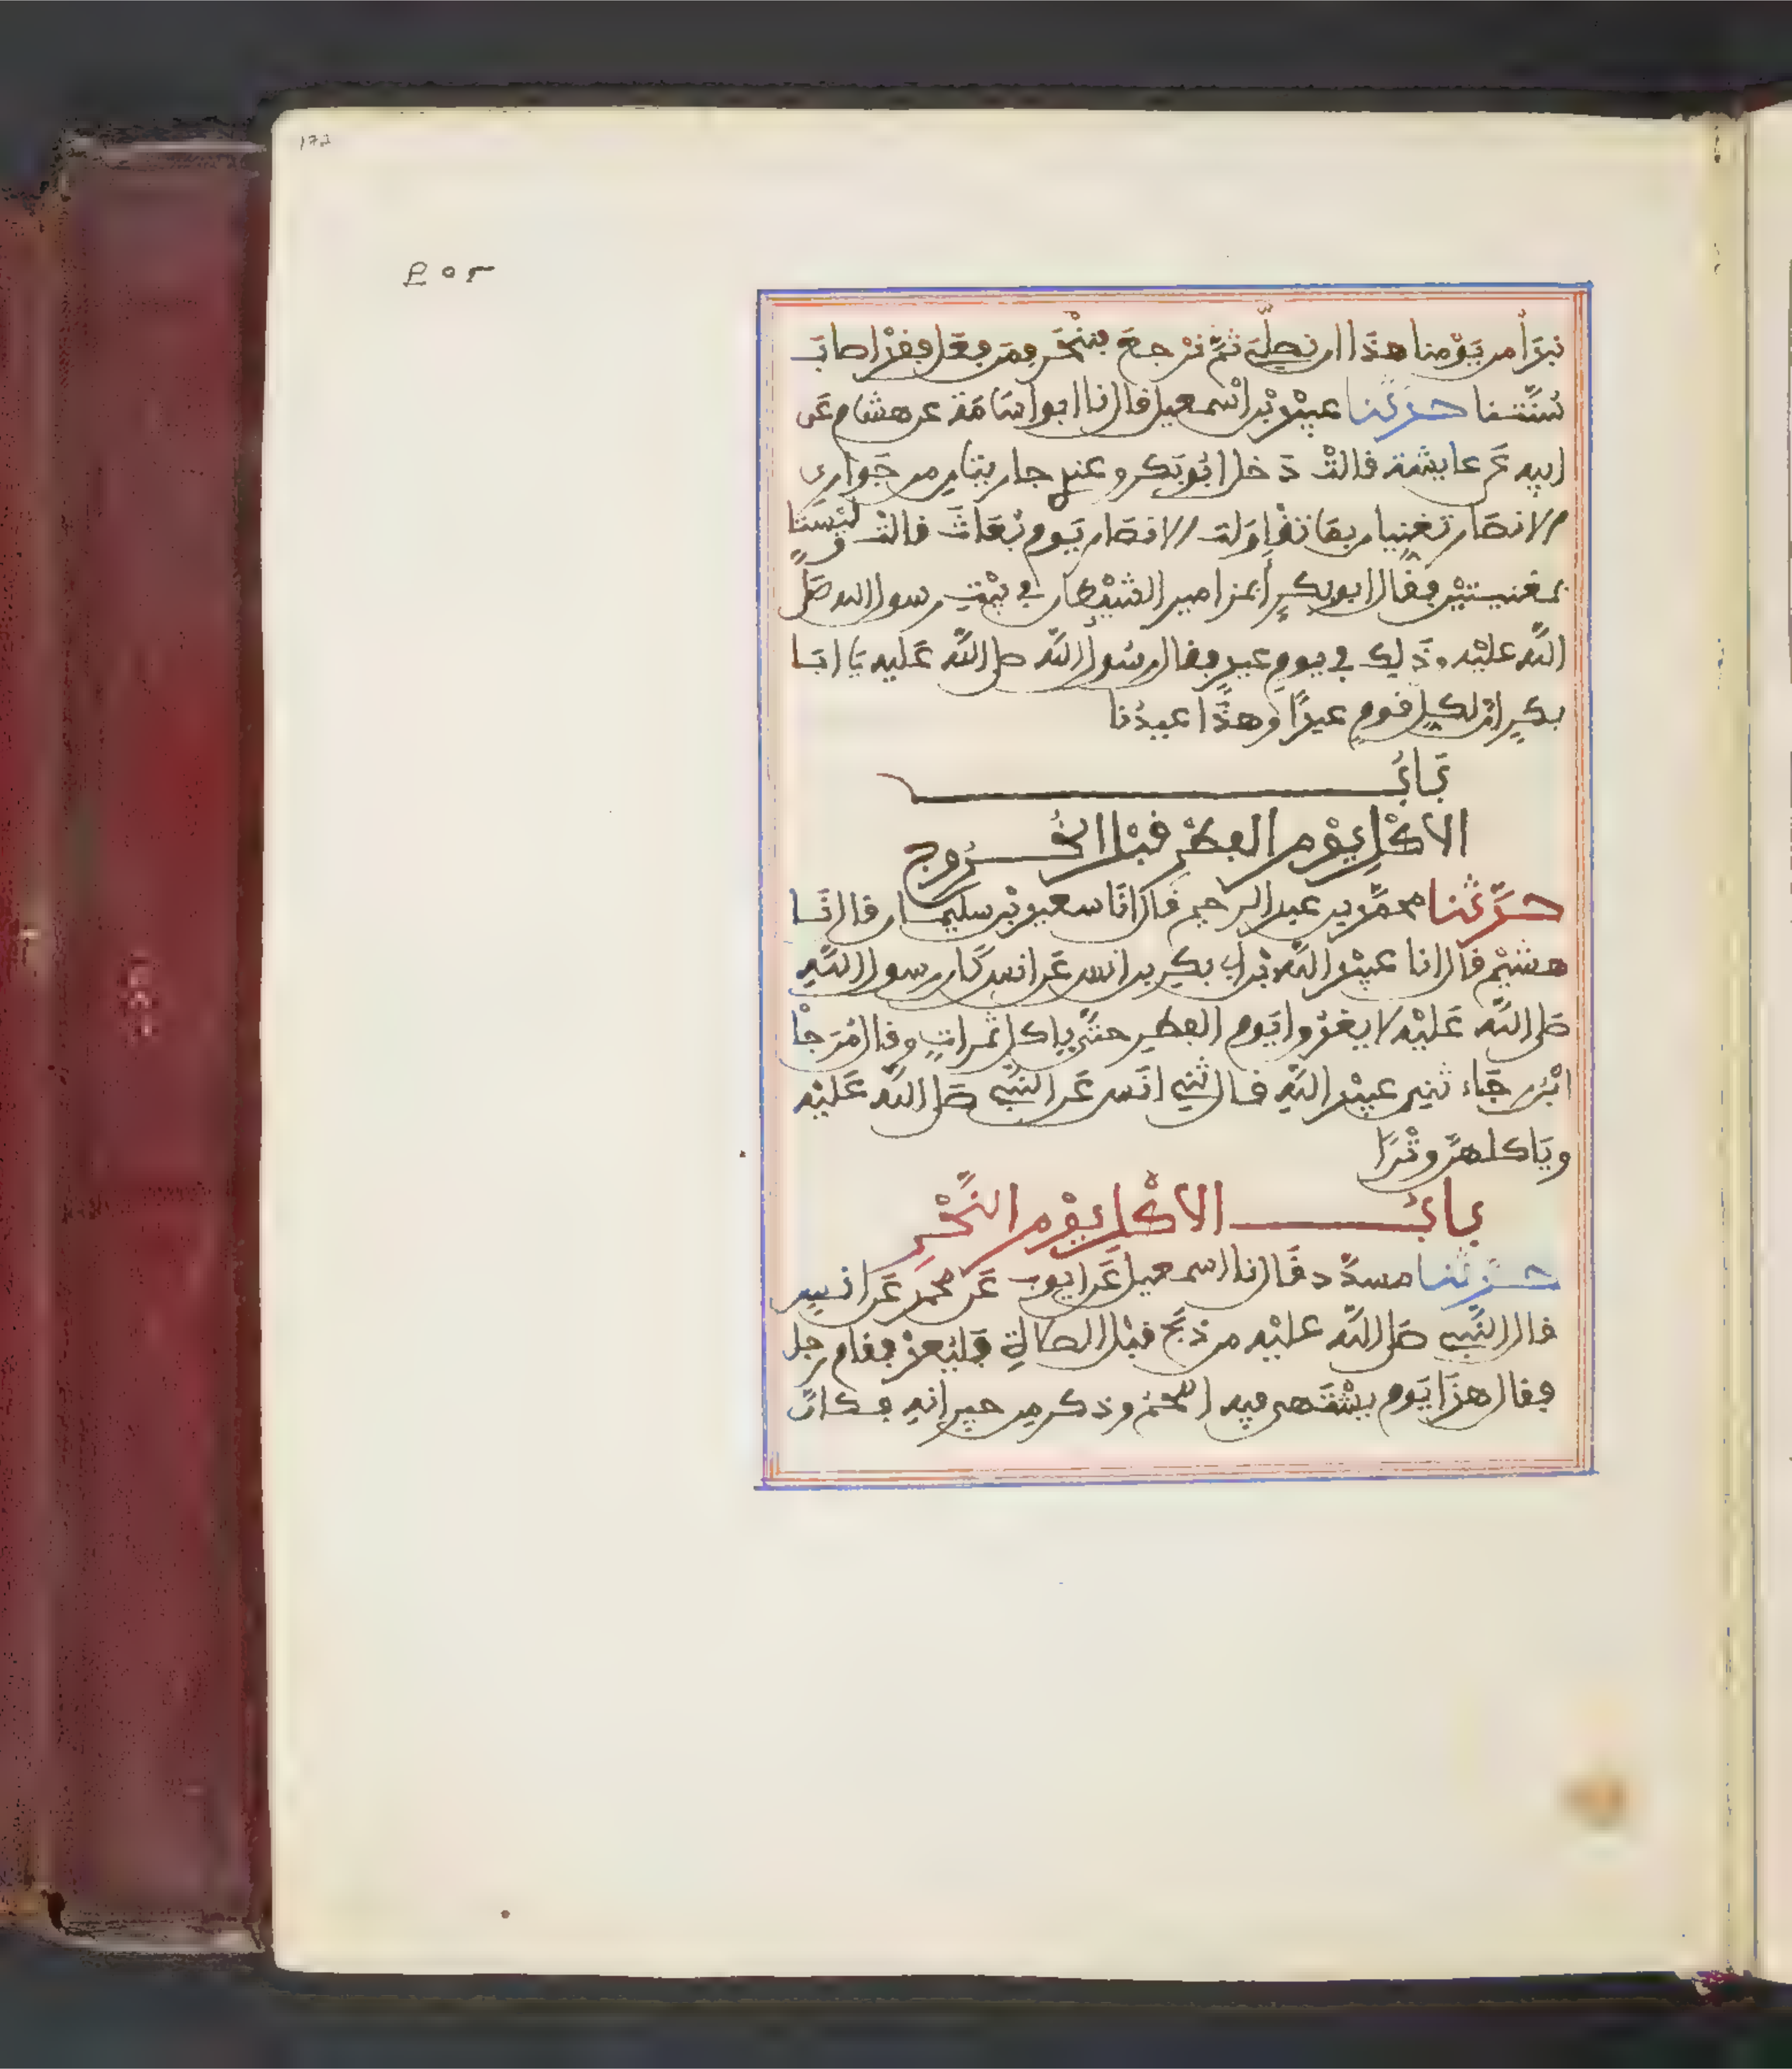 نبدأ من يومنا هذا ان نصلي ثم نرجع فننحر فمن فعل فقد اصاب
سنتنا حدثنا عبيد بن اسمعيل قال نا ابو اسامة عن هشام عن
ابيه عن عايشة قالت دخل ابو بكر وعندي جاريتان من جواري
الانصار تغنيان بما تقاولت الانصار يوم بعاث قالت وليستا
بمغنيتين فقال ابو بكر أبمزامير الشيطان في بيت رسول الله صلى
الله عليه وذلك في يوم عيد فقال رسول الله صلى الله عليه يا ابا
بكر ان لكل قوم عيدا وهذا عيدنا
باب
الاكل يوم الفطر قبل الخروج
حدثنا محمد بن عبد الرحيم قال انا سعيد بن سليمان قال نا
هشيم قال انا عبيد الله بن ابي بكر بن انس عن انس كان رسول الله
صلى الله عليه لا يغدوا يوم الفطر حتى ياكل تمرات وقال مرجا
ابن رجاء ثني عبيد الله قال ثني انس عن النبي صلى الله عليه
وياكلهن وترا
باب الاكل يوم النحر
حدثنا مسدد قال نا اسمعيل عن ايوب عن محمد عن انس
قال النبي صلى الله عليه من ذبح قبل الصلاة فليعد فقام رجل
فقال هذا يوم يشتهى فيه اللحم وذكر من جيرانه فكان